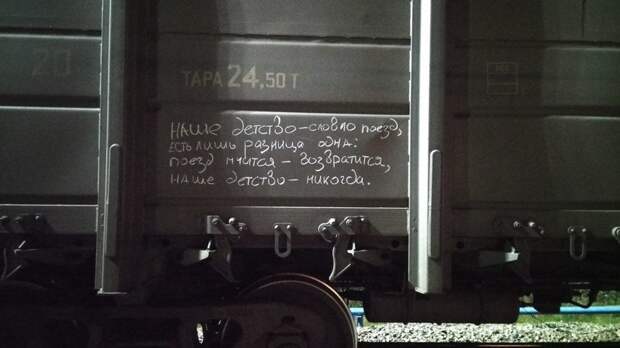 20
ТАРА 24,50 Т
НАШЕ ДЕТСТВО – СЛОВНО ПОЕЗД,
ЕСТЬ ЛИШЬ РАЗНИЦА ОДНА:
ПОЕЗД МЧИТСЯ – ВОЗВРАТИТСЯ,
НАШЕ ДЕТСТВО – НИКОГДА.